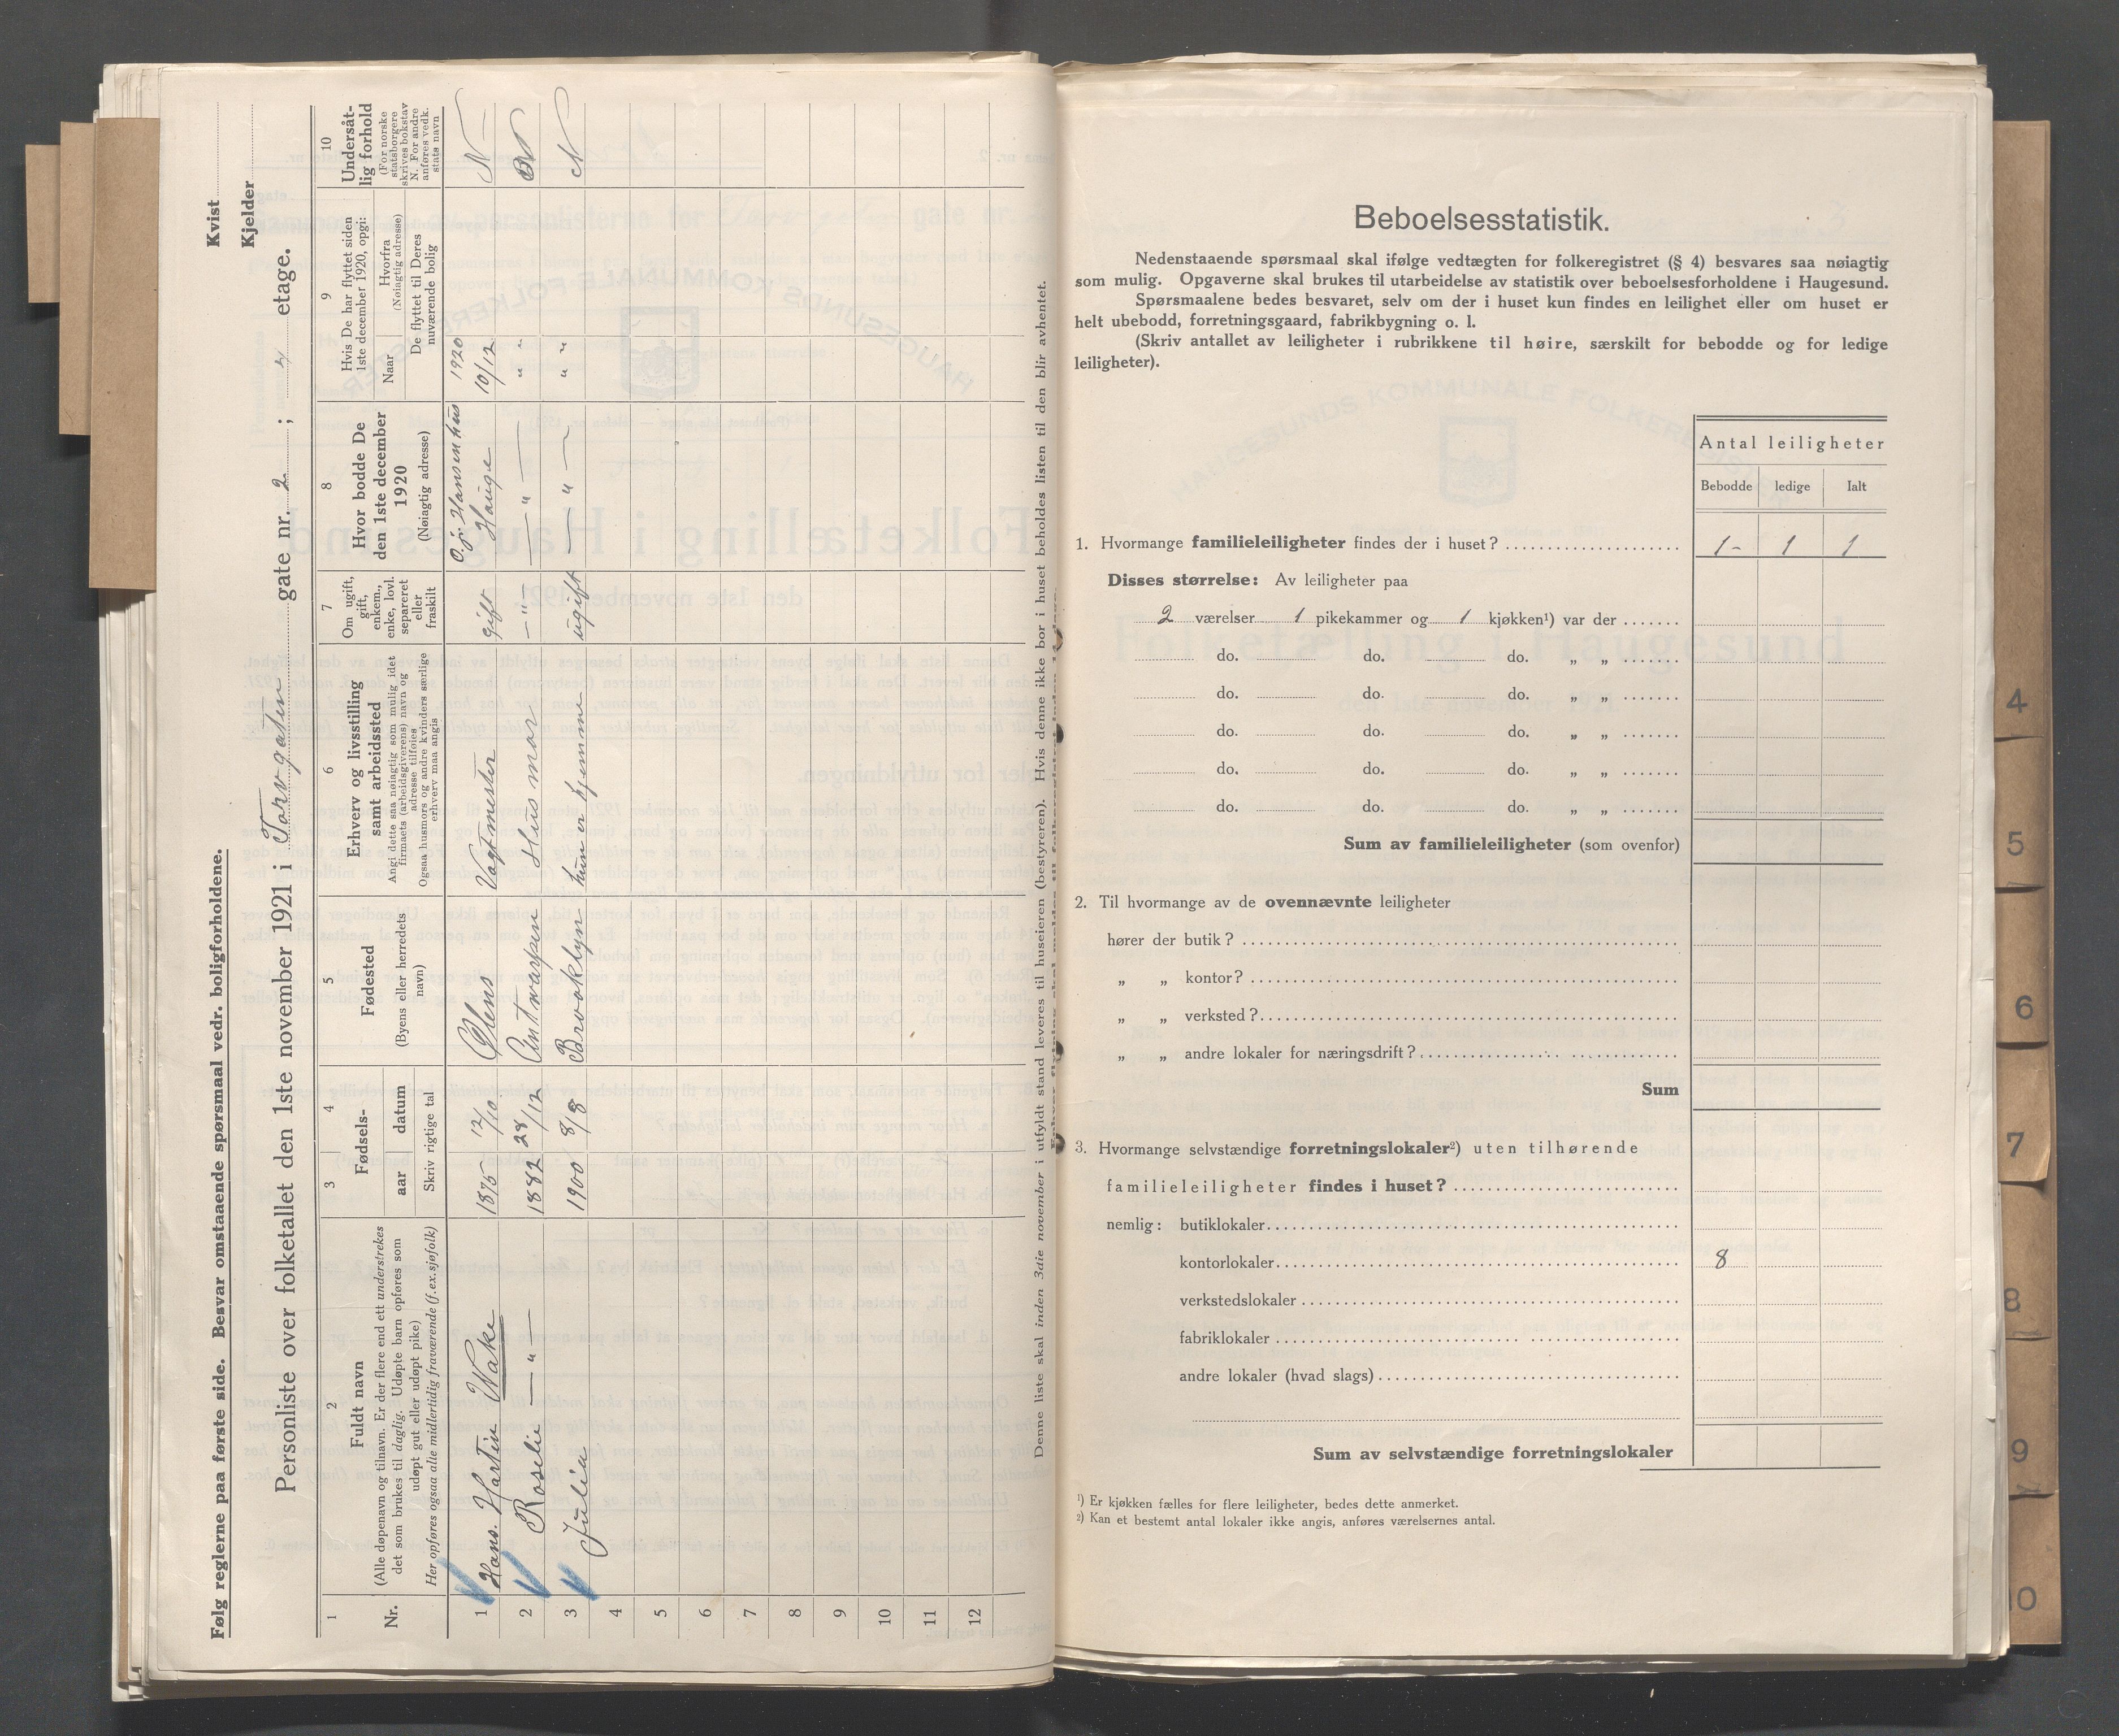 Følg reglerne paa første side. Besvar omstaaende spørsmaal vedr. boligforholdene.
Kvist
Kjelder
Personliste over folketallet den 1ste november 1921 i Torvgaten gate nr. 2 ; etage.
1 2 3 4 5 6 7 8 9 10
Nr.
Fuldt navn
(Alle døpenavn og tilnavn. Er der flere end ett understrekes
det som brukes til daglig. Udøpte barn opføres som
udøpt gut eller udøpt pike)
Her opføres ogsaa alle midlertidig fraværende (f. ex. sjøfolk)
Fødsels-
aar datum
Skriv rigtige tal
Fødested
(Byens eller herredets
navn)
Erhverv og livsstilling
samt arbeidssted
Angi dette saa nøiagtig som mulig idet
firmaets (arbeidsgiverens) navn og
adresse tilføies
Ogsaa husmors og andre kvinders særlige
erhverv maa angis
Om ugift,
gift,
enkem.,
enke, lovl.
separeret
eller
fraskilt
Hvor bodde De
den 1ste december
1920
(Nøiagtig adresse)
Hvis De har flyttet siden
1ste december 1920, opgi:
Naar
Hvorfra
(Nøiagtig adresse)
De flyttet til Deres
nuværende bolig
Undersåt-
lig forhold
(For norske
statsborgere
skrives bokstav
N. For andre
anføres vedk.
stats navn
1 Hans. Martin Wake 1875 12/10 Ølens Vagtmester gift O.J. Hansenhus Hauge 1920 10/12 N
2 Roselie — " — 1882 28/12 Antwarpen Husmor — " — — " — " " N
3 Julia 1900 8/8 Brooklyn hun er hjemme ugift — " — " " N
4
5
6
7
8
9
10
11
12
Denne liste skal inden 3die november i utfyldt stand leveres til huseieren (bestyreren). Hvis denne ikke bor i huset beholdes listen til den blir avhentet.
Beboelsesstatistik.
Nedenstaaende spørsmaal skal ifølge vedtægten for folkeregistret (§ 4) besvares saa nøiagtig
som mulig. Opgaverne skal brukes til utarbeidelse av statistik over beboelsesforholdene i Haugesund.
Spørsmaalene bedes besvaret, selv om der i huset kun findes en leilighet eller om huset er
helt ubebodd, forretningsgaard, fabrikbygning o. l.
(Skriv antallet av leiligheter i rubrikkene til høire, særskilt for bebodde og for ledige
leiligheter).
Antal leiligheter
Bebodde ledige Ialt
1. Hvormange familieleiligheter findes der i huset? 1- 1 1
Disses størrelse: Av leiligheter paa
2 værelser 1 pikekammer og 1 kjøkken¹) var der
do. do. do. „ „
do. do. do. „ „
do. do. do. „ „
do. do. do. „ „
do. do. do. „ „
Sum av familieleiligheter (som ovenfor)
2. Til hvormange av de ovennævnte leiligheter
hører der butik?
„ „ kontor?
„ „ verksted?
„ „ andre lokaler for næringsdrift?
Sum
3. Hvormange selvstændige forretningslokaler²) uten tilhørende
familieleiligheter findes i huset?
nemlig: butiklokaler
kontorlokaler 8
verkstedslokaler
fabriklokaler
andre lokaler (hvad slags)
Sum av selvstændige forretningslokaler
¹) Er kjøkken fælles for flere leiligheter, bedes dette anmerket.
²) Kan et bestemt antal lokaler ikke angis, anføres værelsernes antal.
4
5
6
7
8
9
10